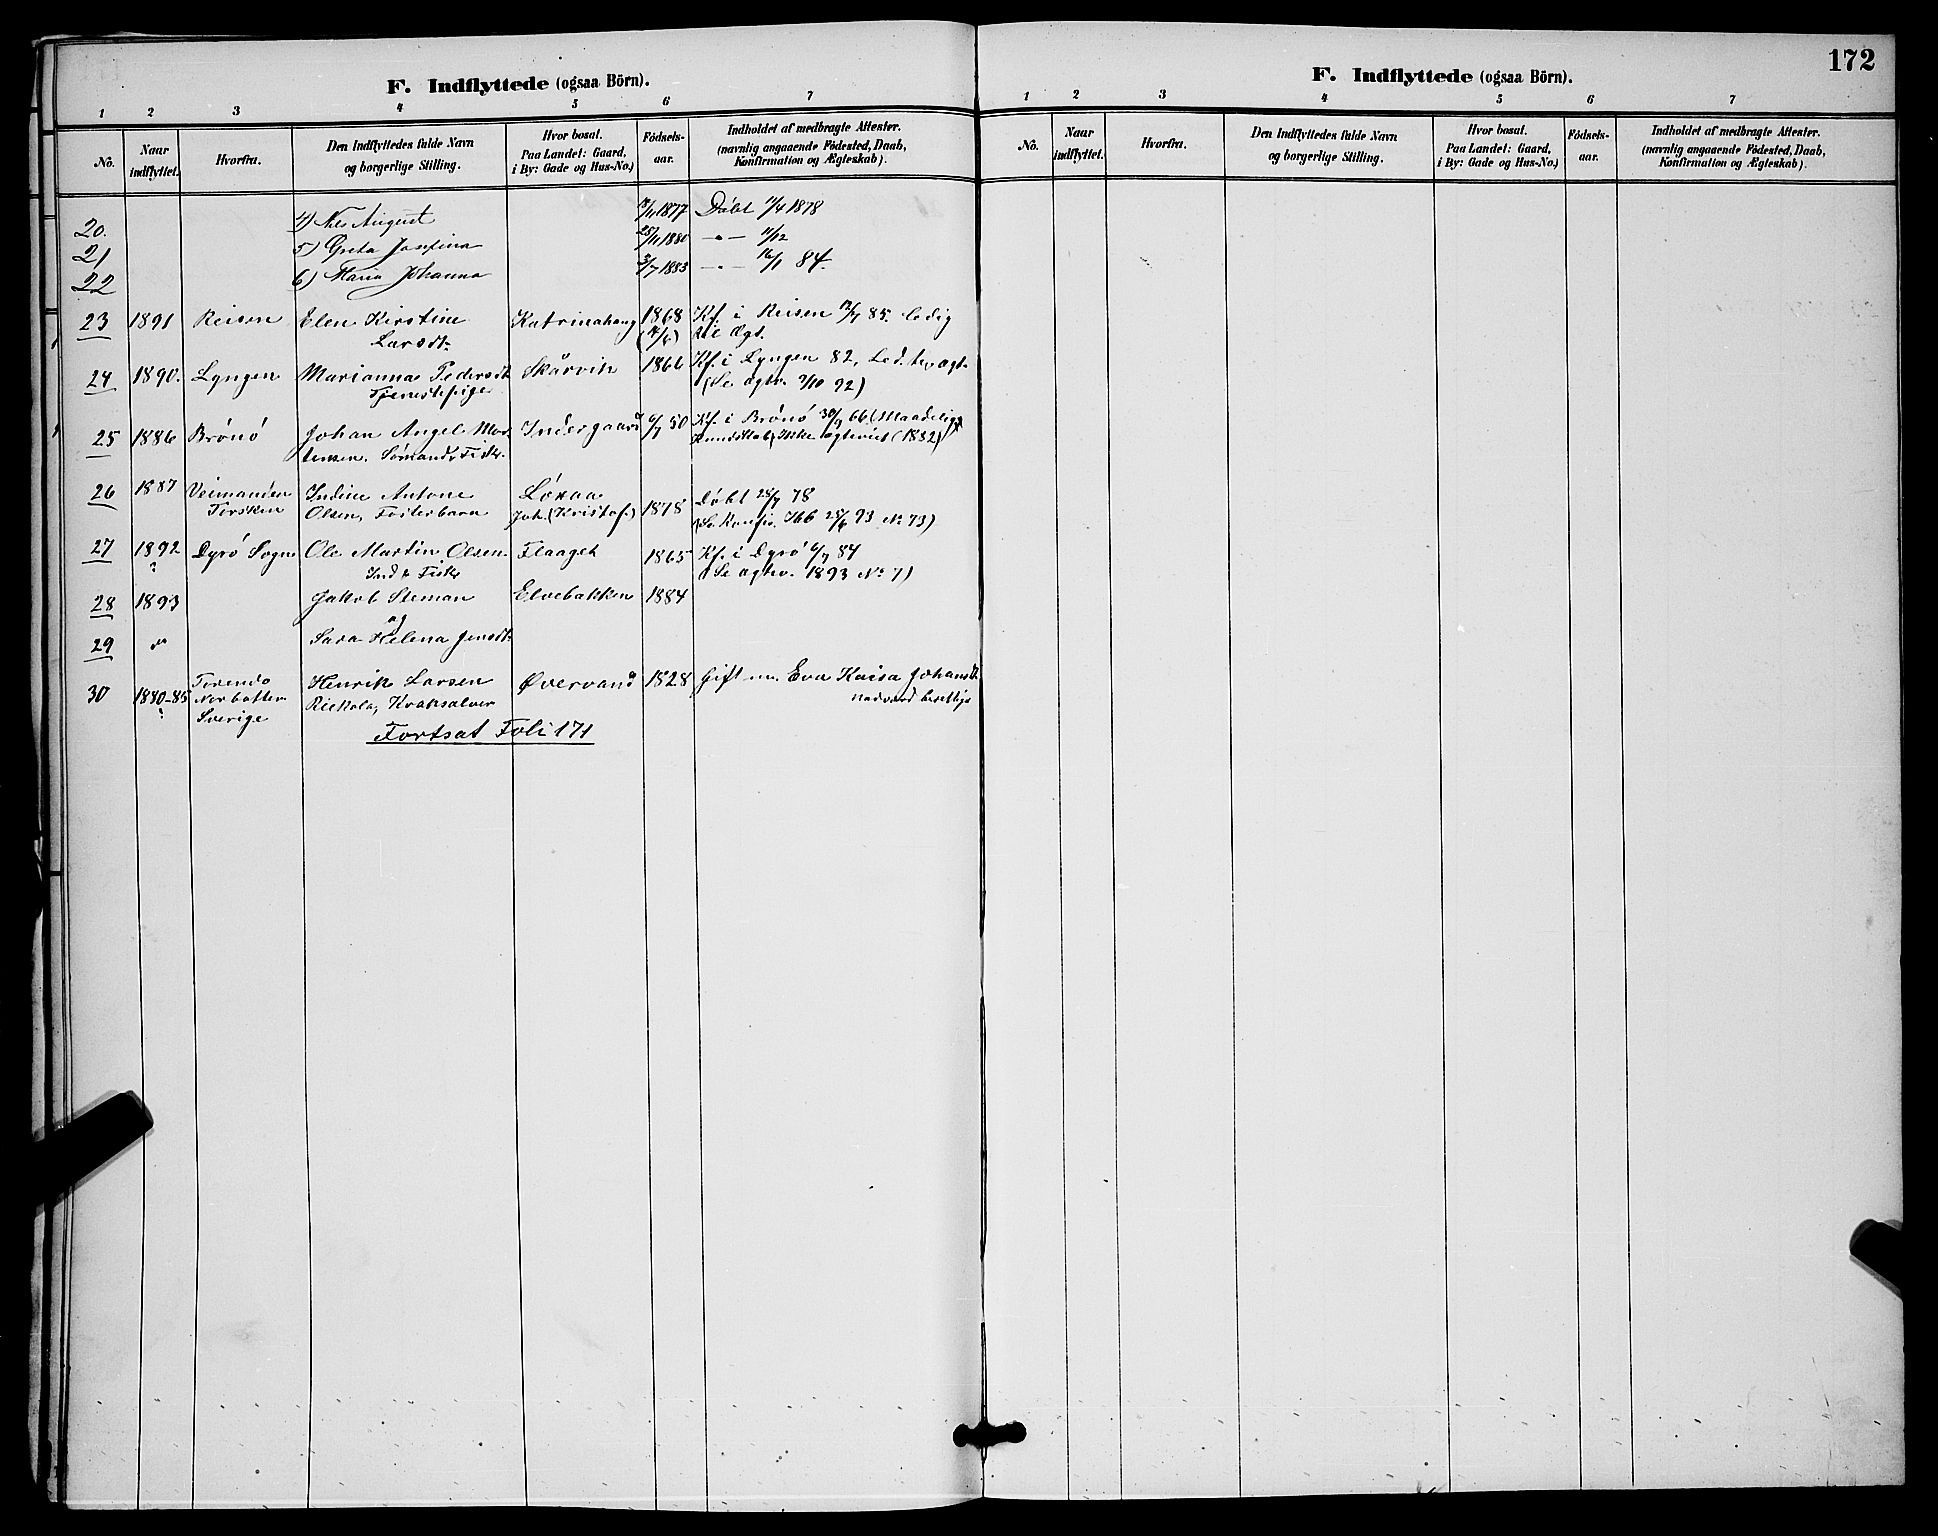 F. Indflyttede (ogsaa Börn).
1 2 3 4 5 6 7
No. Naar indflyttet. Hvorfra. Den Indflyttedes fulde Navn og borgerlige Stilling. Hvor bosat. Paa Landet: Gaard, i By: Gade og Hus-No.) Födsels-aar. Indholdet af medbragte Attester. (navnlig angaaende Födested, Daab, Konfirmation og Ægteskab).
20. 4) Nils August 1877 Döbt 1/4 1878
21 5) Greta Josefina 25/11 1880 — " — 11/12
22 6) Maria Johanna 3/7 1883 — " — 16/1 84.
23 1891 Reisen Elen Kirstine Katrinahaug 1868 Kf. i Reisen 12/7 85. ledig
Larsdt.
24 1890. Lyngen Marianna Pedersdt Skårvik 1866 Kf. i Lyngen 82, Led. t. ægt.
Tjenestepige (Se ægtv. 2/10 92)
25 1886 Brönö Johan Angel Mor- Indergaard 6/7 50 Kf. i Brönö 30/9 66 (Maadelig
tensen. Sömand, Fisker. Kundskab) Ikke ægteviet (1832)
26 1887 Veimanden Indine Antone Löxaa 1878 Döbt 28/7 78
Torsken Olsen, Fosterbarn Joh. (Kristof.) (Se Konfir. 766 25/6 93 No 73)
27 1892 Dyrö Sogn Ole Martin Olsen Flaaget 1865 Kf. i Dyrö 6/7 84
Ind & Fisker (Se ægtev. 1893 No 7)
28 1893 Jakob Steman Elvebakken 1884
og
29 " Sara Helena Jensdt.
30 1880-85 Torendo Henrik Larsen Øvervand 1828 Gift m. Eva Kaisa Johansdt.
Norbotten Riekola, Kvaksalver
Sverige
Fortsat Foli 171
172
F. Indflyttede (ogsaa Börn).
1 2 3 4 5 6 7
No. Naar indflyttet. Hvorfra. Den Indflyttedes fulde Navn og borgerlige Stilling. Hvor bosat. Paa Landet: Gaard, i By: Gade og Hus-No.) Födsels-aar. Indholdet af medbragte Attester. (navnlig angaaende Födested, Daab, Konfirmation og Ægteskab).